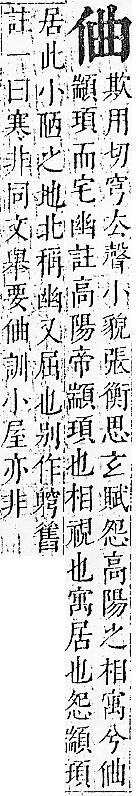 㑋欺用切穹去聲小貌張衡思玄賦怨高陽之相寓兮㑋
顓頊而宅幽註高陽帝顓頊也相視也寓居也怨顓頊
居此小陋之地北稱幽又屈也别作䠻舊
註一曰寒非同文舉要㑋訓小屋亦非